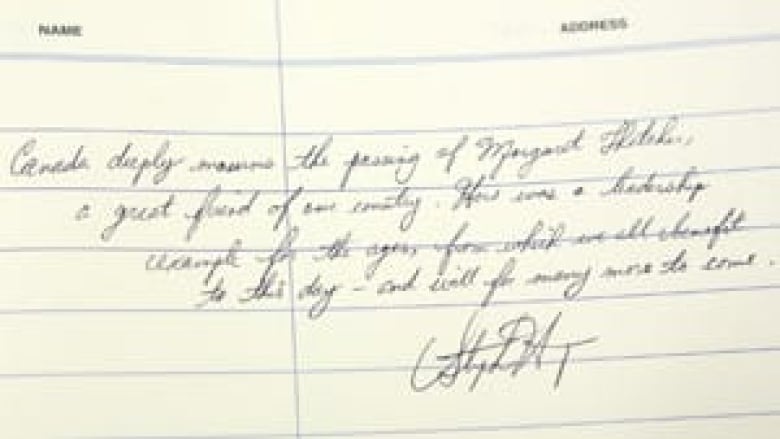 NAME ADDRESS
Canada deeply mourns the passing of Margaret Thatcher,
a great friend of our country. Hers was a leadership
example for the ages, from which we all benefit
to this day – and will for many more to come.